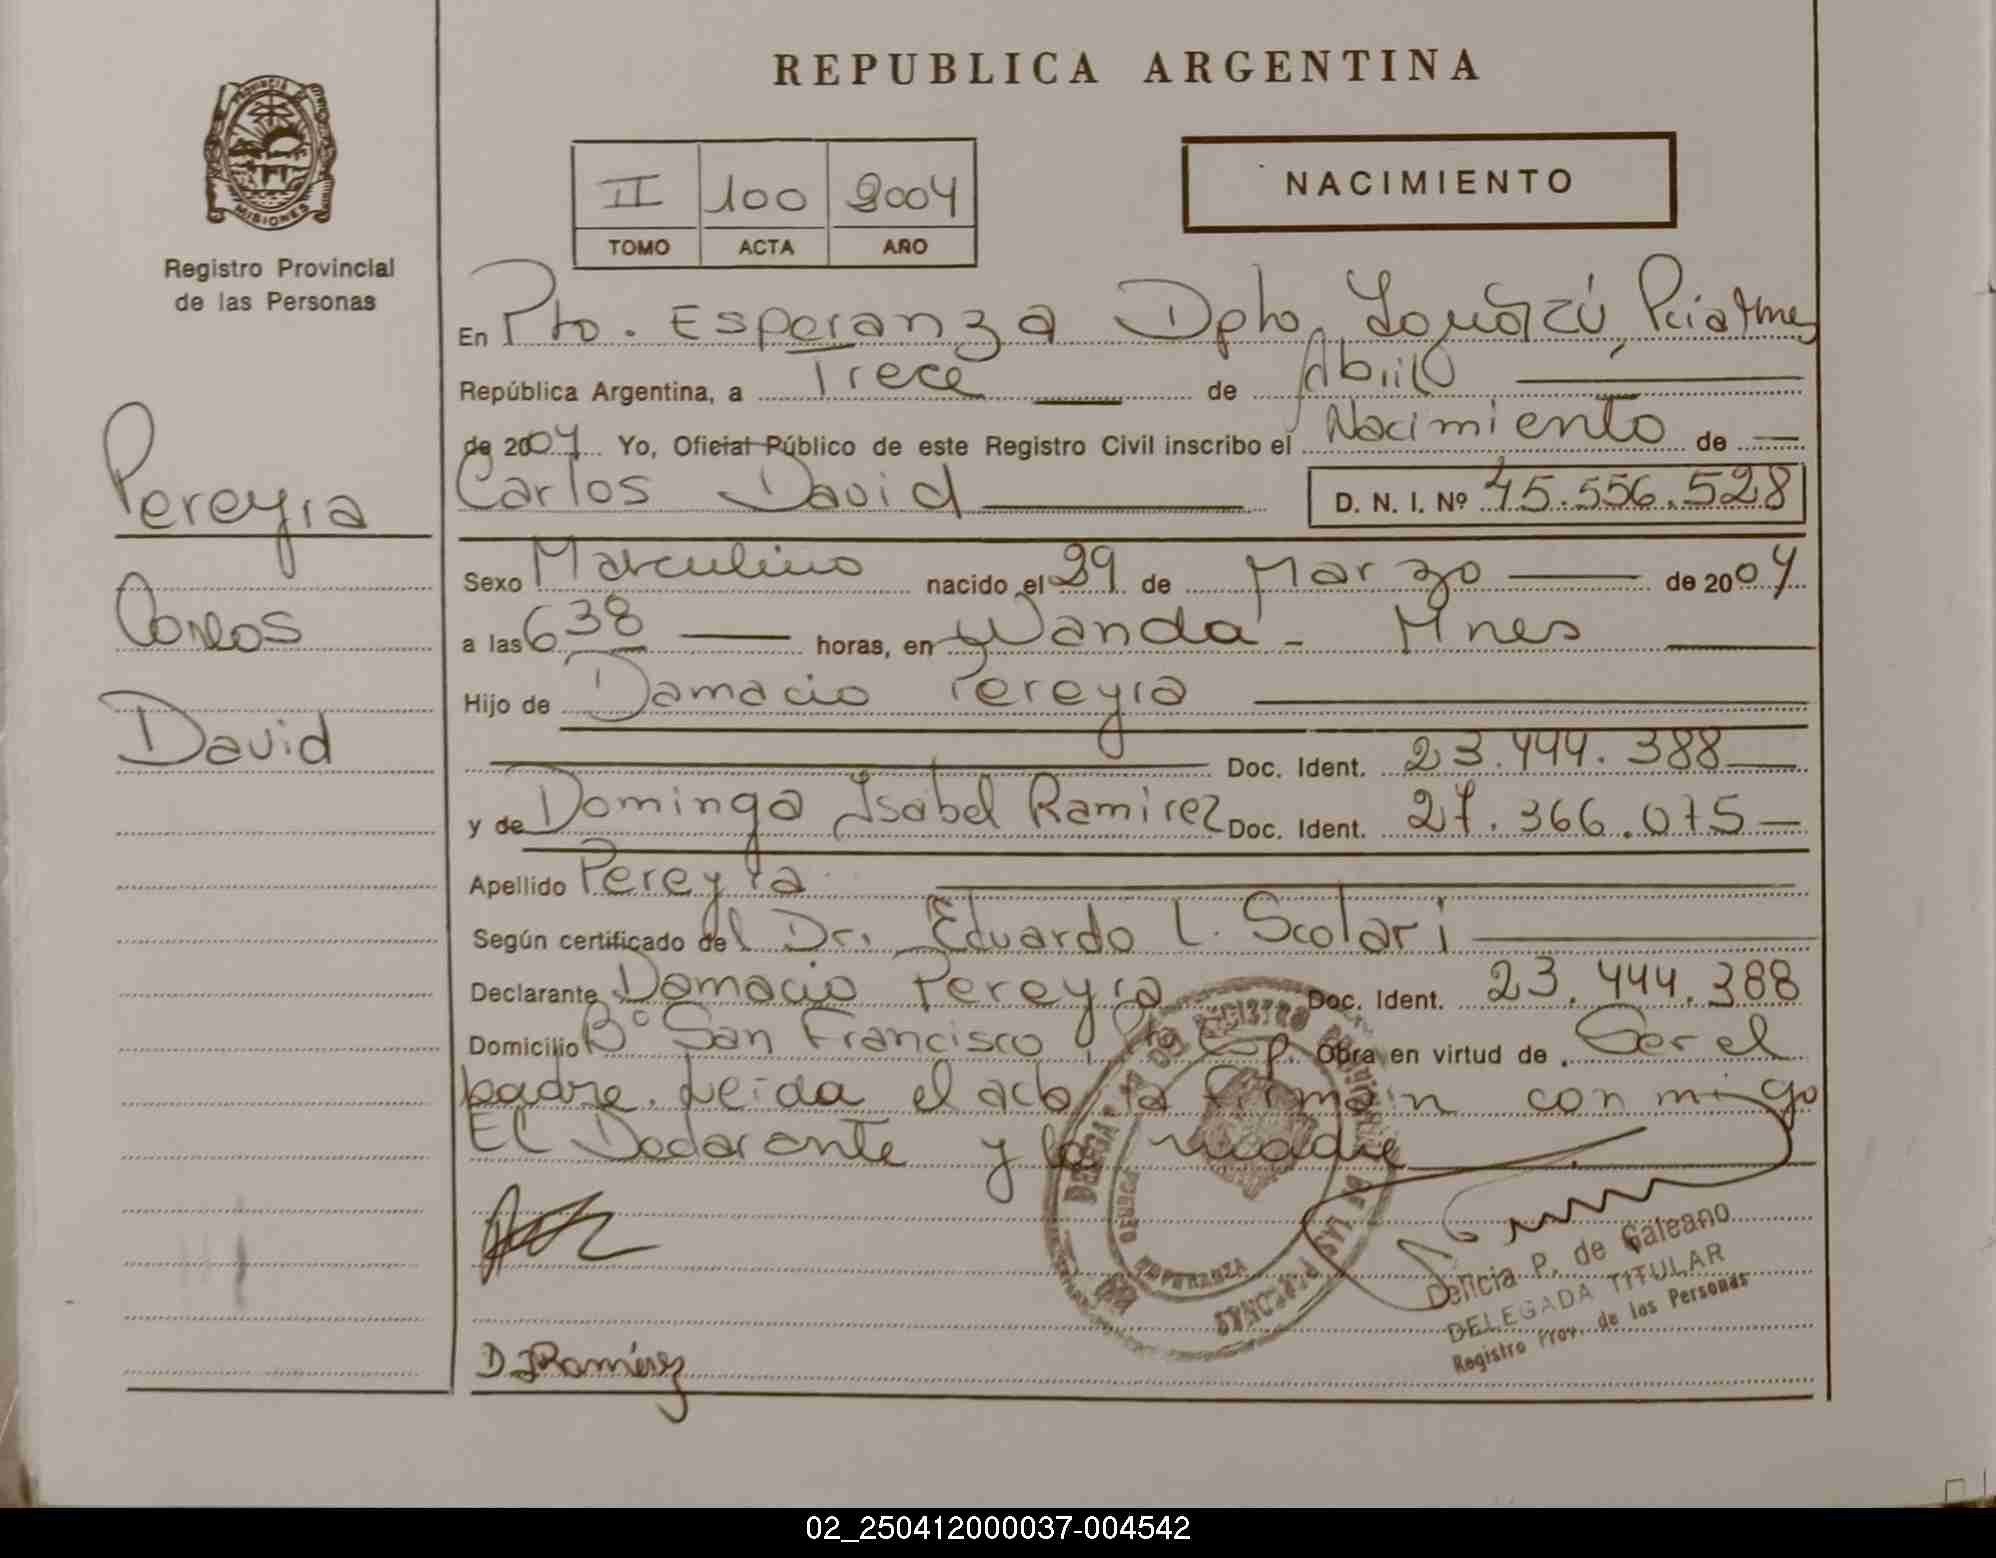 REPUBLICA ARGENTINA
PROVINCIA DE
MISIONES
Registro Provincial
de las Personas
II 100 2004
TOMO ACTA AÑO
NACIMIENTO
Pereyra
Carlos
David
En Pto. Esperanza Dpto. Iguazú, Pcia Mnes
República Argentina, a Trece de Abril
de 2004 Yo, Oficial Público de este Registro Civil inscribo el Nacimiento de
Carlos David D. N. I. Nº 45.556.528
Sexo Masculino nacido el 29 de Marzo de 2004
a las 6 38 horas, en Wanda - Mnes
Hijo de Damacio Pereyra
Doc. Ident. 23.444.388
y de Dominga Isabel Ramirez Doc. Ident. 27.366.075
Apellido Pereyra
Según certificado del Dr. Eduardo L. Scolari
Declarante Damacio Pereyra Doc. Ident. 23.444.388
Domicilio Bº San Francisco Pto Esp. Obra en virtud de Ser el
padre. Leida el acta la firman conmigo
El Declarante y la madre
DELEGA REGISTRO PROVINCIAL DE LAS PERSONAS
PUERTO ESPERANZA
Delicia P. de Galeano
DELEGADA TITULAR
Registro Prov. de las Personas
D I Ramirez
02_250412000037-004542